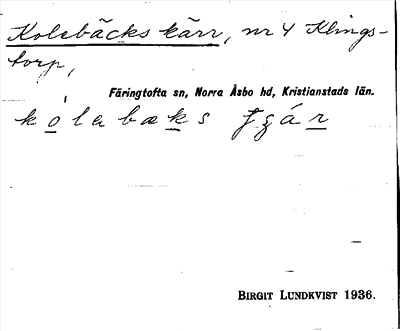 Kolsbäcks kärr, nr 4 Klings-
torp,
Färingtofta sn, Norra Åsbo hd, Kristianstads län.
BIRGIT LUNDKVIST 1936.